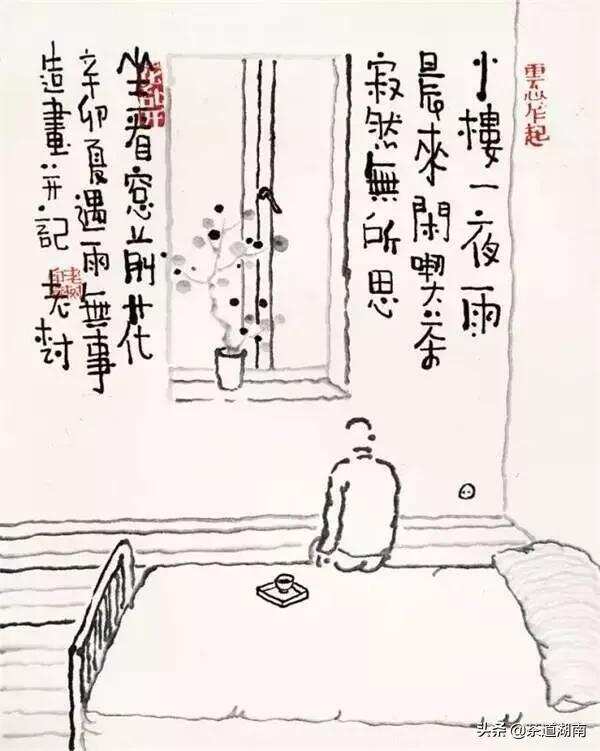 小樓一夜雨
晨來閑喫茶
寂然無所思
坐看窓前花
辛卯夏遇雨無事
造畫并記 老树
头条 @茶道湖南